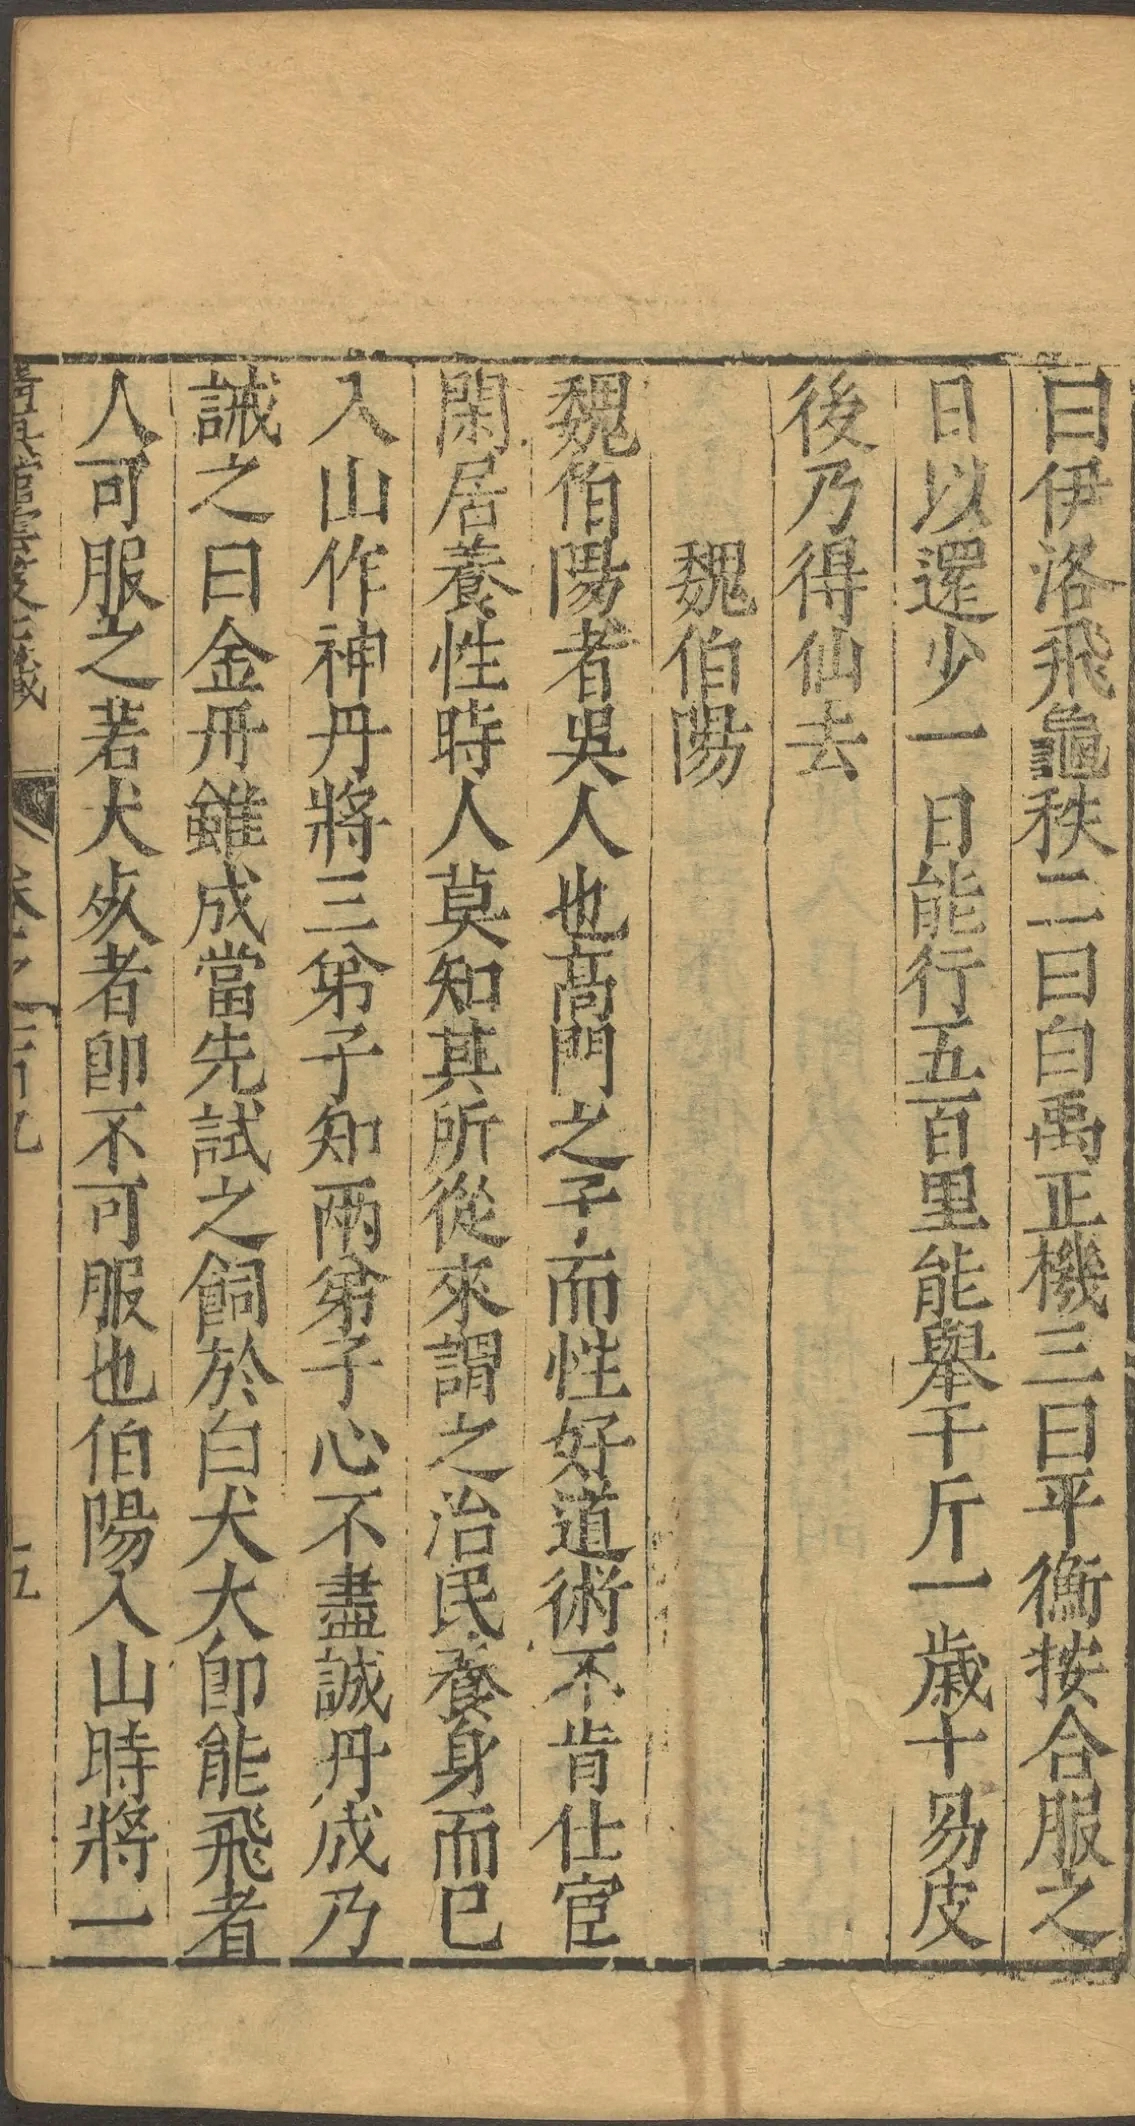 曰伊洛飛龜秩二曰白禹正機三曰平衡按合服之
日以還少一日能行五百里能舉千斤一歲十易皮
後乃得仙去
魏伯陽
魏伯陽者吳人也高門之子而性好道術不肯仕宦
閑居養性時人莫知其所從來謂之治民養身而已
入山作神丹將三弟子知兩弟子心不盡誠丹成乃
誡之曰金丹雖成當先試之飼於白犬犬即能飛者
人可服之若犬死者即不可服也伯陽入山時將一